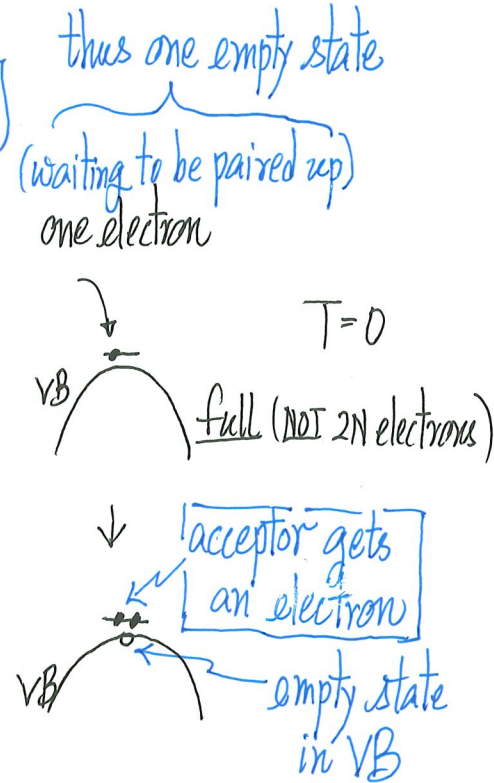 thus one empty state
(waiting to be paired up)
one electron
T=0
VB
full (NOT 2N electrons)
acceptor gets
an electron
VB
empty state
in VB